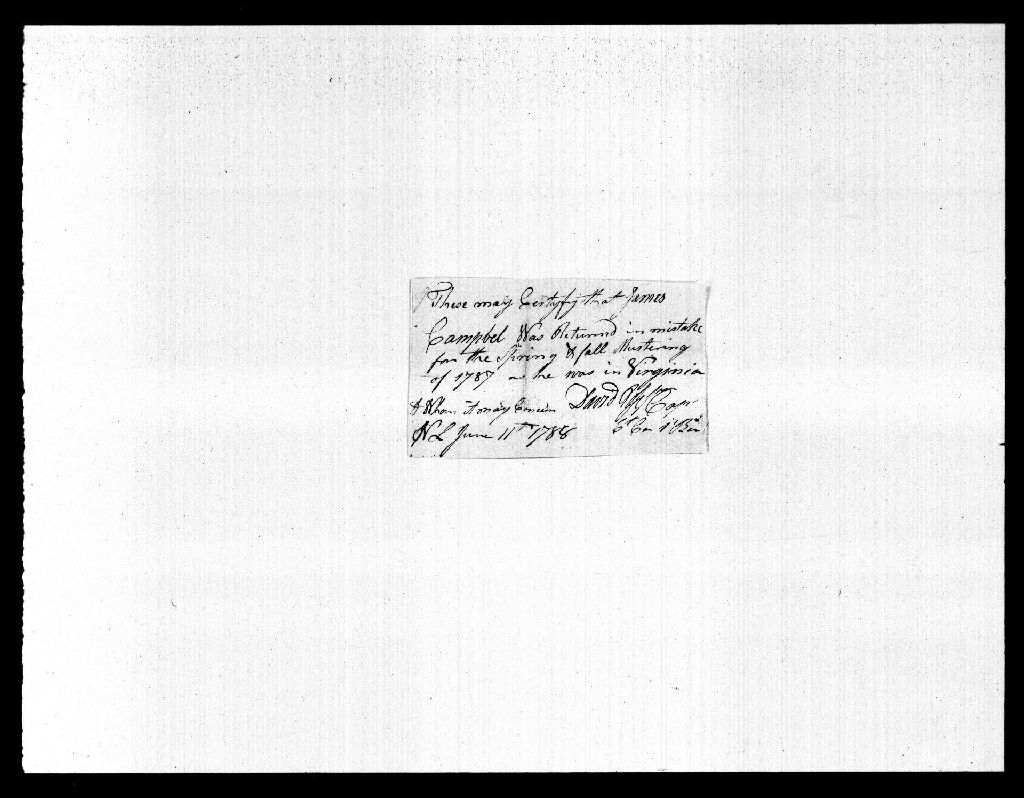 These may Certyfy that James
Campbel Was Returnd in mistake
for the Spring & fall Mustering
of 1787 as he was in Virginia
to Whom it may Concern David Capt
N L June 11th 1788 6th Co 1 Bn